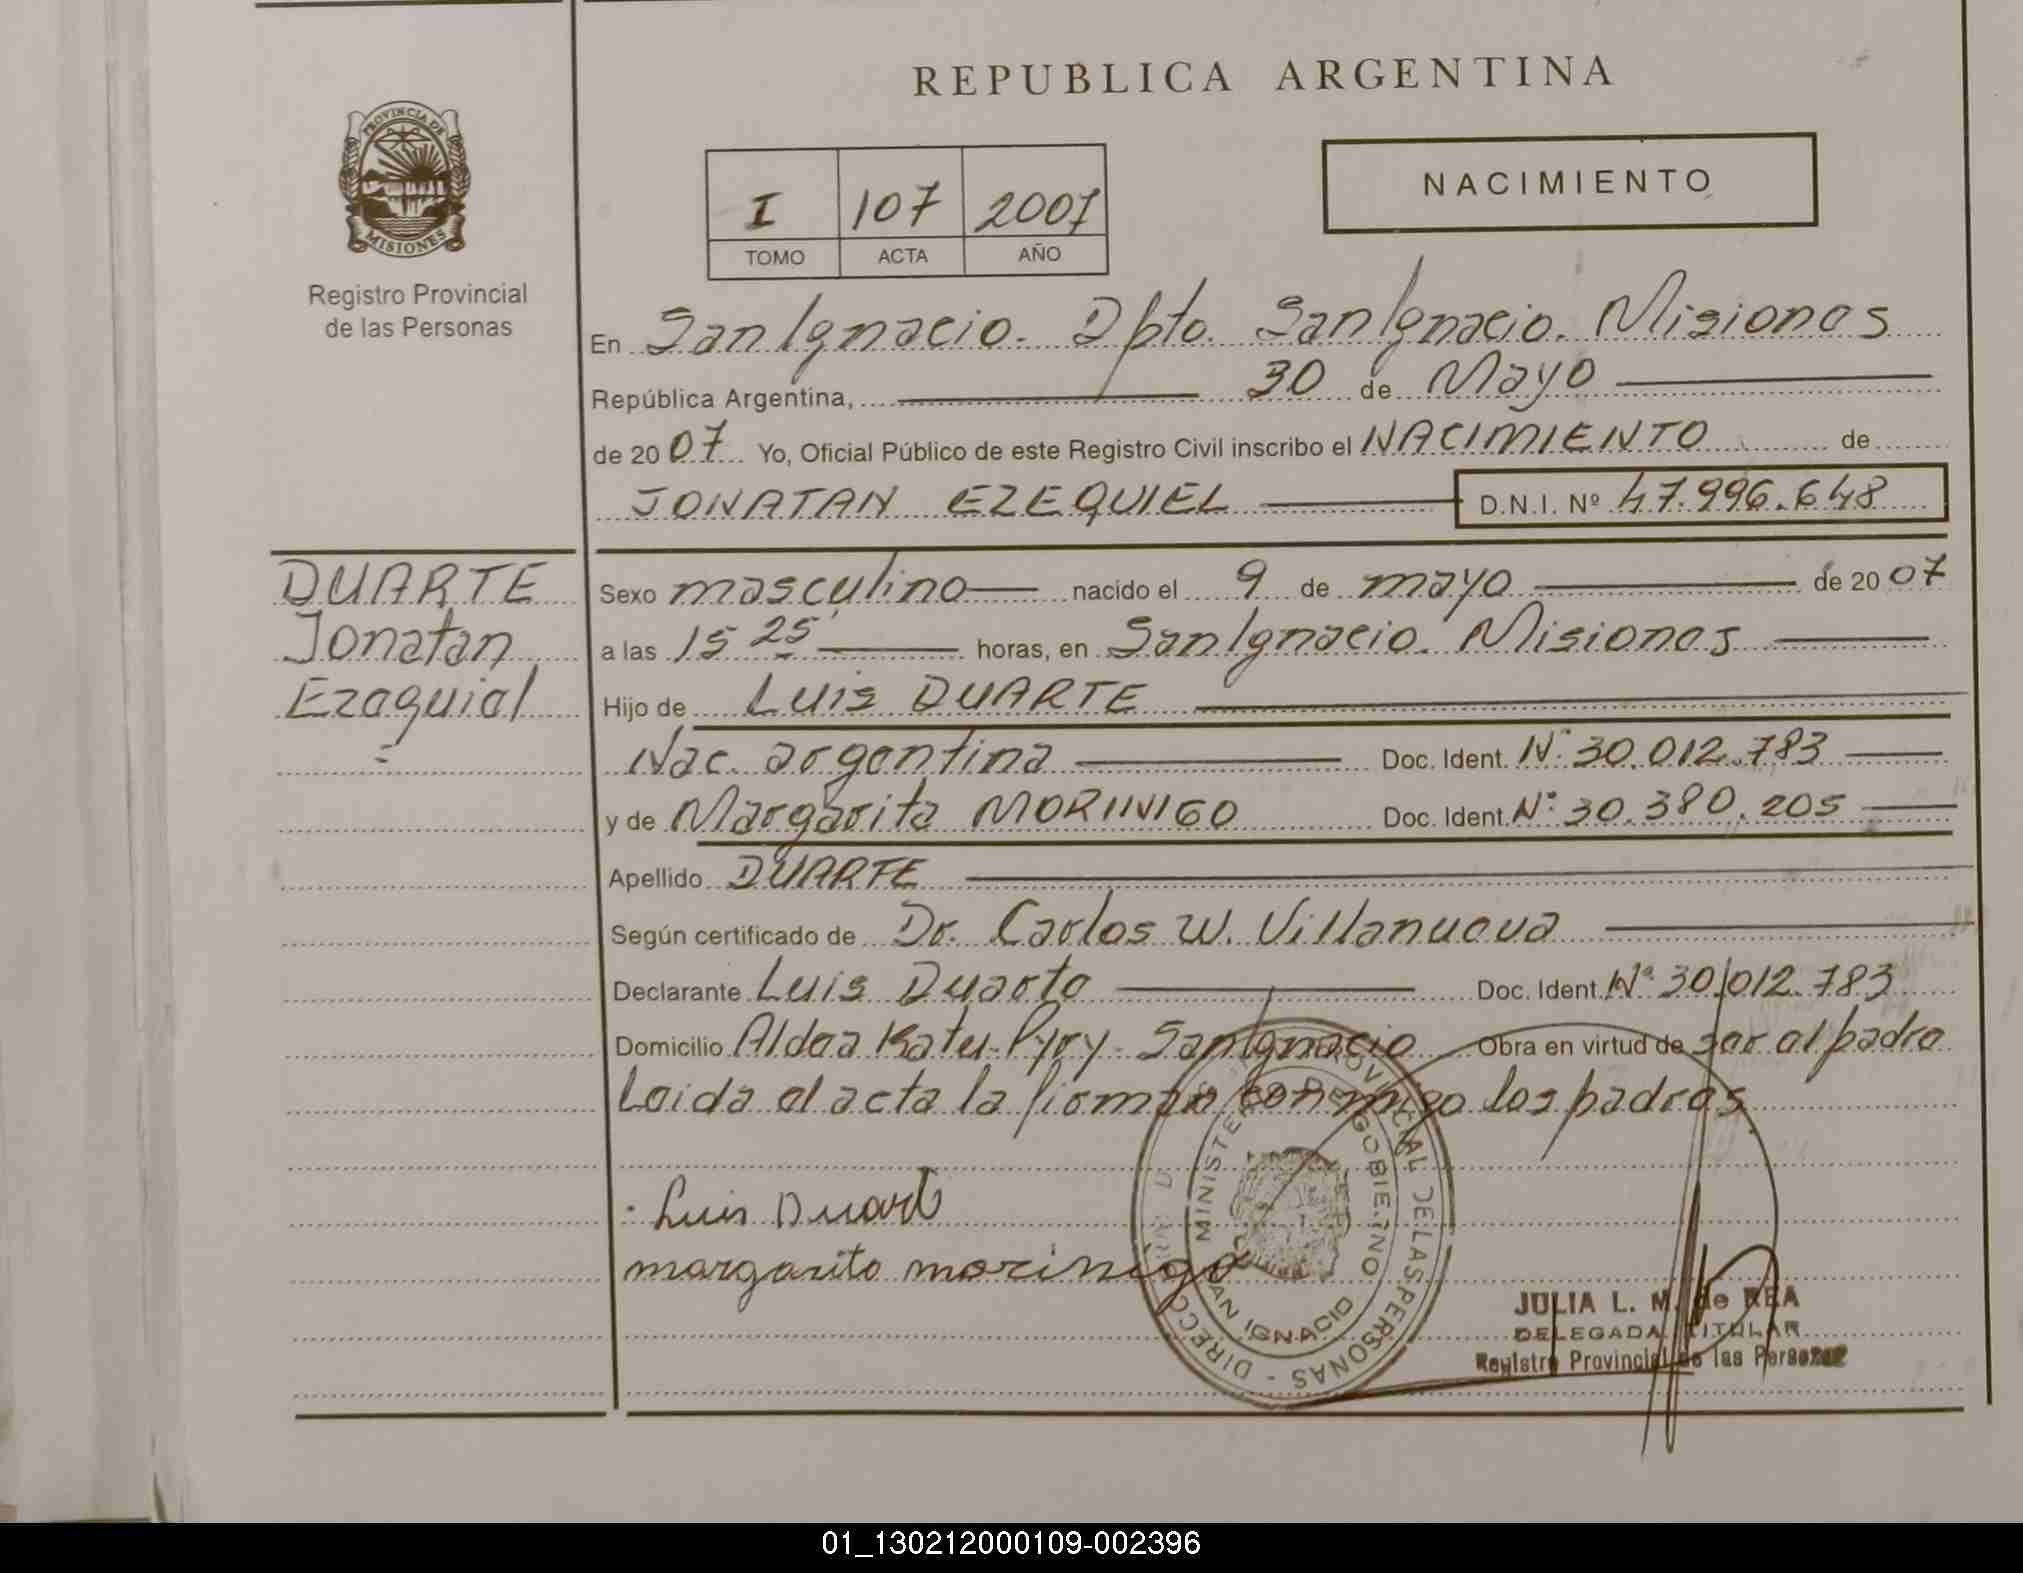 REPUBLICA ARGENTINA
PROVINCIA DE
MISIONES
Registro Provincial
de las Personas
I 107 2007
TOMO ACTA AÑO
NACIMIENTO
En San Ignacio. Dpto. San Ignacio. Misiones
República Argentina, 30 de Mayo
de 2007 Yo, Oficial Público de este Registro Civil inscribo el NACIMIENTO de
JONATAN EZEQUIEL D.N.I. Nº 47.996.648
DUARTE
Jonatan
Ezequiel
Sexo masculino nacido el 9 de mayo de 2007
a las 15 25 horas, en San Ignacio. Misiones
Hijo de Luis DUARTE
Nac. argentina Doc. Ident. Nº 30.012.783
y de Margarita MORIINIGO Doc. Ident. Nº 30.380.205
Apellido DUARTE
Según certificado de Dr. Carlos W. Villanueva
Declarante Luis Duarte Doc. Ident. Nº 30.012.783
Domicilio Aldea Katu-Pyry - San Ignacio Obra en virtud de ser el padre
Leida el acta la firman conmigo los padres
Luis Duart
margarita morinigo
DIRECC PROVINCIAL DE LAS PERSONAS -
MINISTERIO DE GOBIERNO
SAN IGNACIO
JULIA L. M. de REA
DELEGADA TITULAR
Registro Provincial de las Personas
01_130212000109-002396